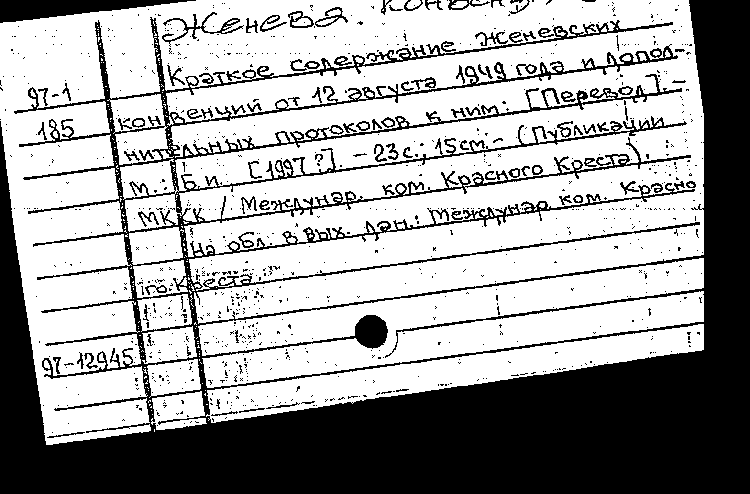 Женева.
Краткое содержание Женевских
97-1
185
конвенций от 12 августа 1949 года и допол-
нительных протоколов к ним: [Перевод]. -
М.: Б.и., [1997?]. - 23 с.; 15 см. - (Публикации
МККК / Междунар. ком. Красного Креста).
На обл. в вых. дан.: Междунар. ком. Красно
го Креста
97-12945